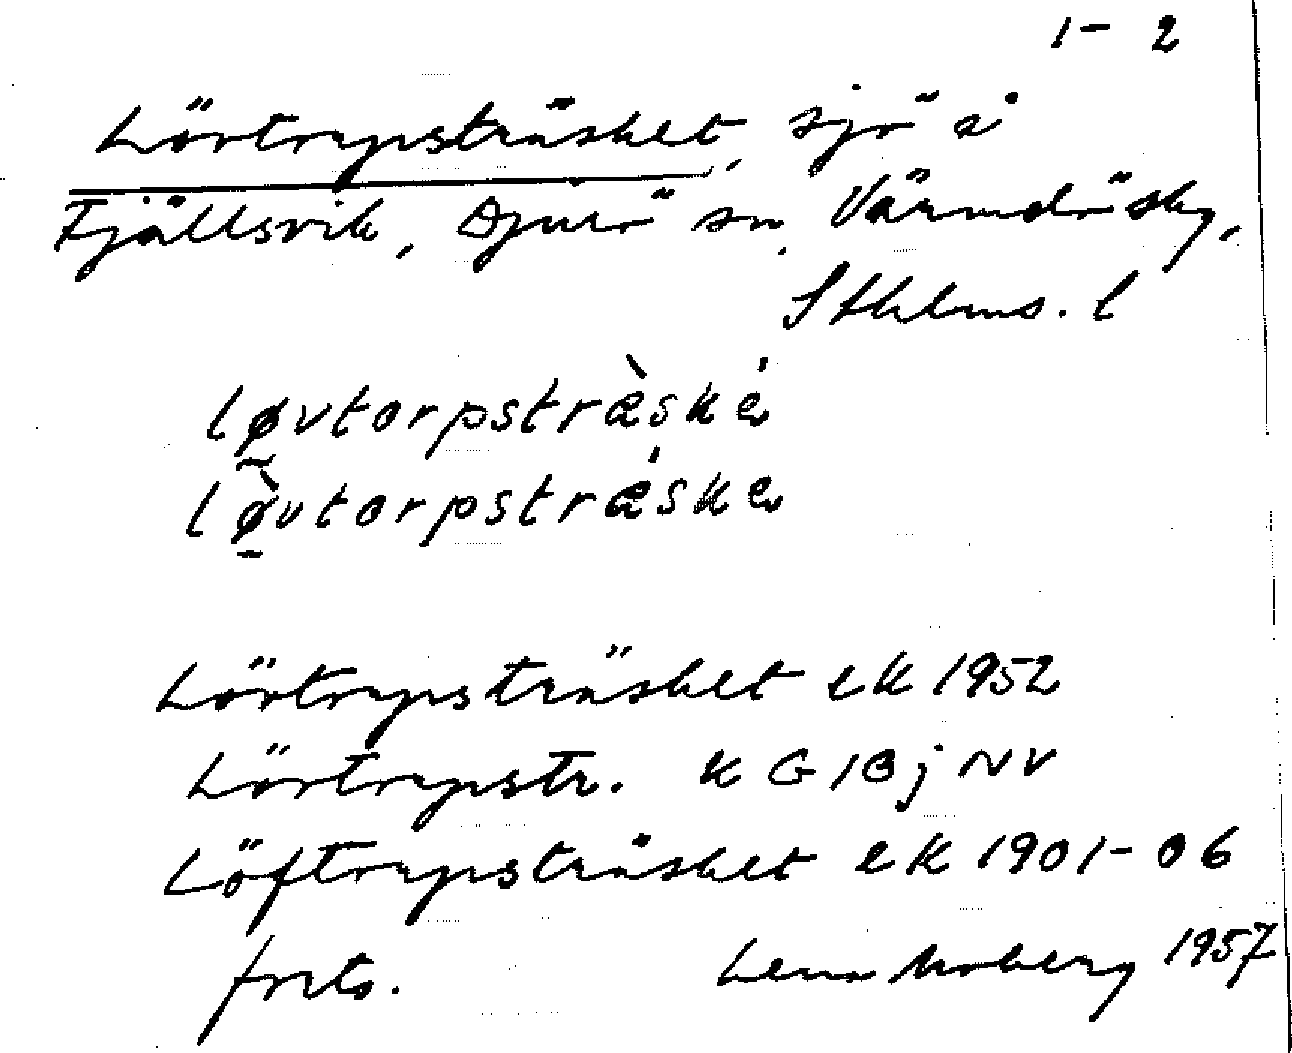 1-2
Lövtorpsträsket, sjö å
Fjällsvik, Djurö sn, Värmdö sky,
Sthlms. l
løvtorpstræ̀ské
lø̀vtorpstrǽske
Lövtorpsträsket ek 1952
Lövtorpstr. KG 1Bj NV
Löftorpsträsket ek 1901-06
forts. Lena Moberg 1957